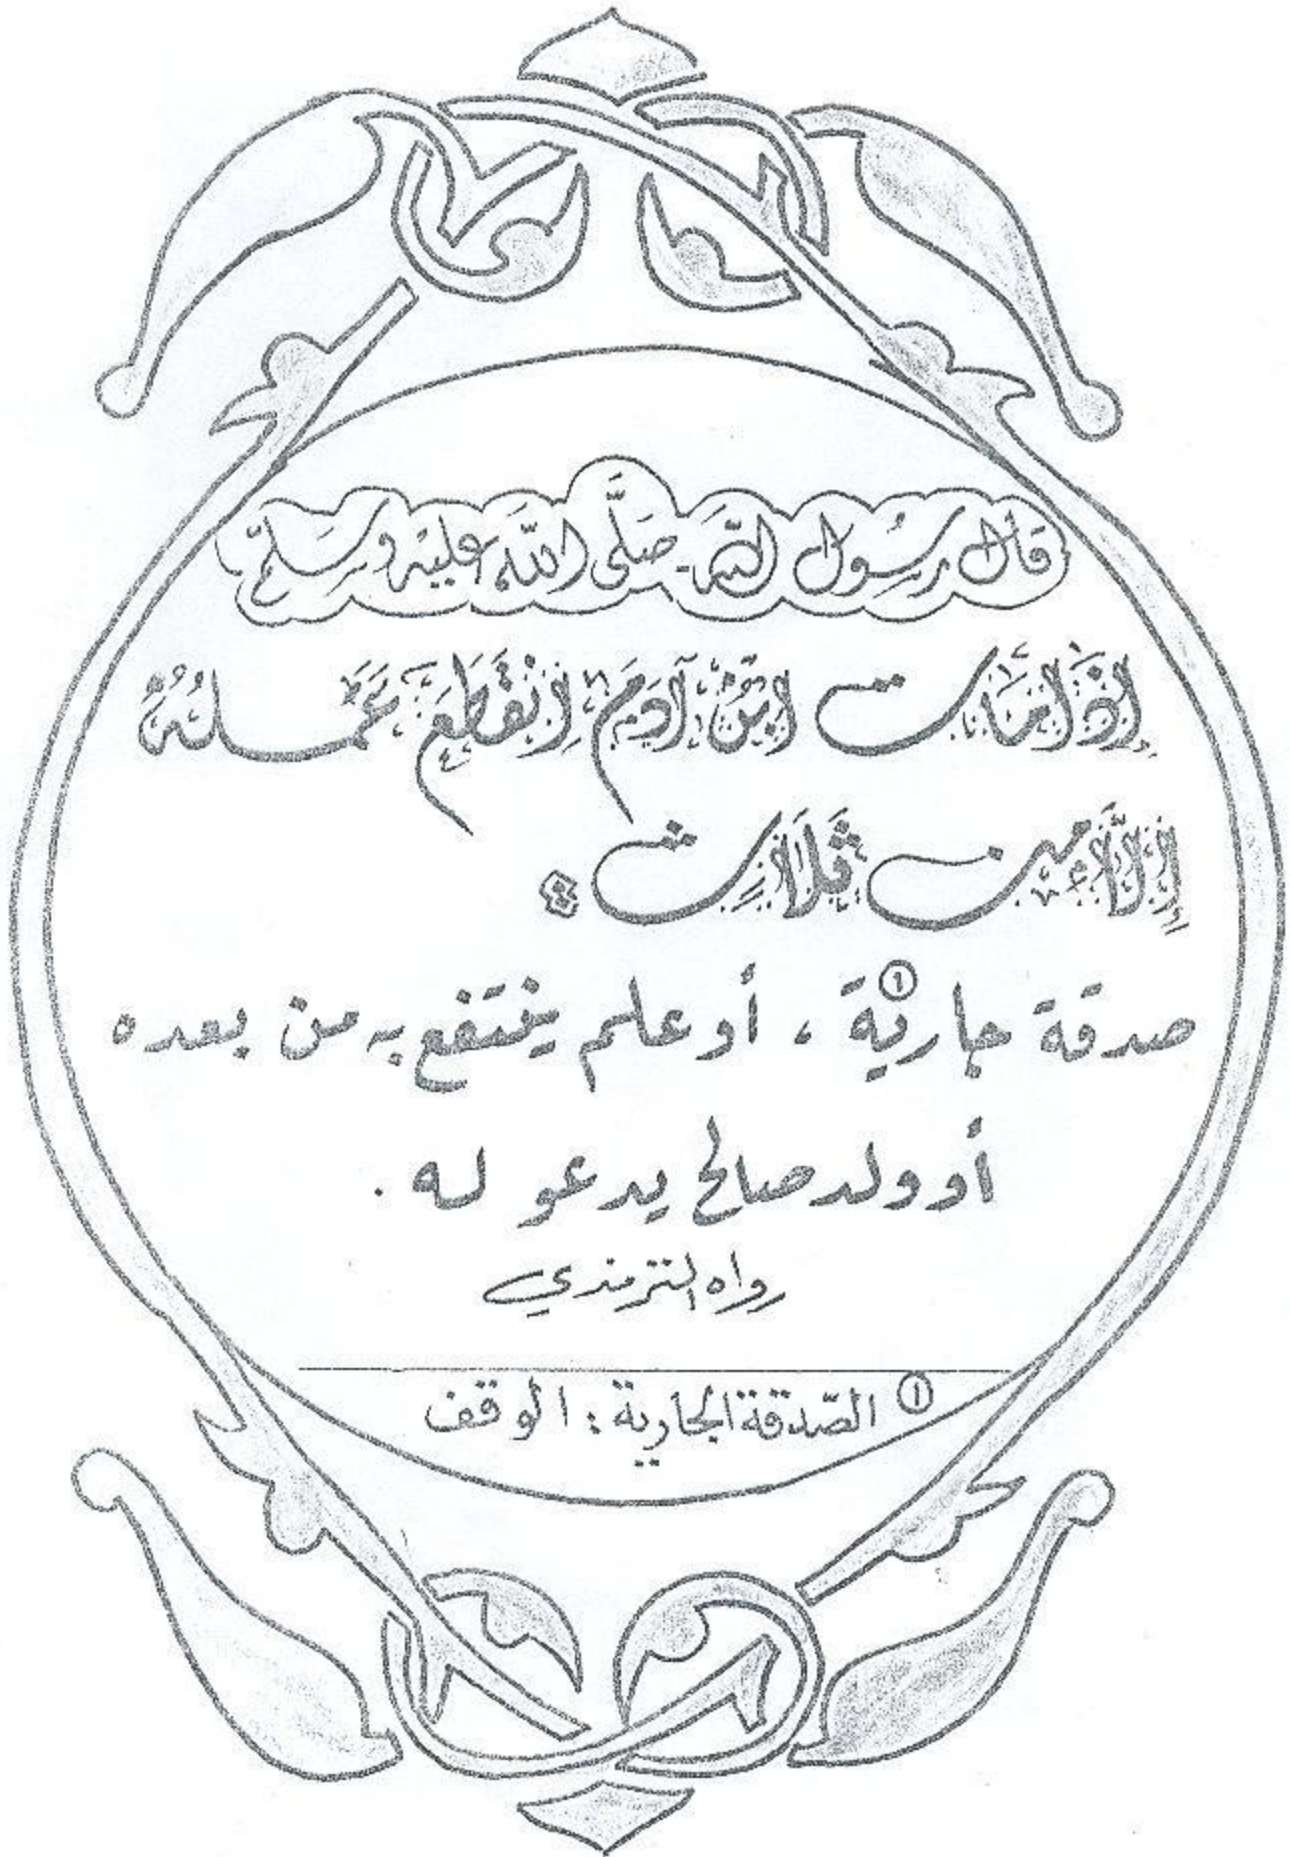 قال رسول الله صلَّى اللهَ عليه وسلم
إِذَا مَاتَ ابْنُ آدَمَ اِنْقَطَعَ عَمَلُهُ
إِلَّا مِن ثَلَاثٍ :
صدقة جارية ①، أو علم ينتفع به من بعده
أو ولد صالح يدعو له .
رواه الترمذي
① الصّدقة الجارية : الوقف